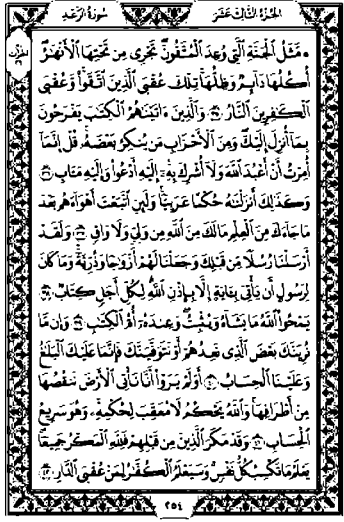 الجزء الثالث عشر
سورة الرعد
مَّثَلُ الْجَنَّةِ الَّتِي وُعِدَ الْمُتَّقُونَ تَجْرِي مِن تَحْتِهَا الْأَنْهَٰرُ
أُكْلُهَا دَآئِمٌ وَظِلُّهَا تِلْكَ عُقْبَى الَّذِينَ اتَّقَوا وَّعُقْبَى
الْكَٰفِرِينَ النَّارُ وَالَّذِينَ ءَاتَيْنَٰهُمُ الْكِتَٰبَ يَفْرَحُونَ
بِمَا أُنزِلَ إِلَيْكَ وَمِنَ الْأَحْزَابِ مَن يُنكِرُ بَعْضَهُ قُلْ إِنَّمَا
أُمِرْتُ أَنْ أَعْبُدَ اللَّهَ وَلَا أُشْرِكَ بِهِ إِلَيْهِ أَدْعُوا وَإِلَيْهِ مَـَٔابِ
وَكَذَٰلِكَ أَنزَلْنَٰهُ حُكْمًا عَرَبِيًّا وَلَئِنِ اتَّبَعْتَ أَهْوَآءَهُم بَعْدَ
مَا جَآءَكَ مِنَ الْعِلْمِ مَا لَكَ مِنَ اللَّهِ مِن وَلِيٍّ وَلَا وَاقٍ وَلَقَدْ
أَرْسَلْنَا رُسُلًا مِّن قَبْلِكَ وَجَعَلْنَا لَهُمْ أَزْوَٰجًا وَذُرِّيَّةً وَمَا كَانَ
لِرَسُولٍ أَن يَأْتِيَ بِـَٔايَةٍ إِلَّا بِإِذْنِ اللَّهِ لِكُلِّ أَجَلٍ كِتَابٌ
يَمْحُوا اللَّهُ مَا يَشَآءُ وَيُثَبِّتُ وَعِندَهُ أُمُّ الْكِتَٰبِ وَإِن مَّا
نُرِيَنَّكَ بَعْضَ الَّذِي نَعِدُهُمْ أَوْ نَتَوَفَّيَنَّكَ فَإِنَّمَا عَلَيْكَ الْبَلَٰغُ
وَعَلَيْنَا الْحِسَابُ أَوَلَمْ يَرَوْا أَنَّا نَأْتِي الْأَرْضَ نَنقُصُهَا
مِنْ أَطْرَافِهَا وَاللَّهُ يَحْكُمُ لَا مُعَقِّبَ لِحُكْمِهِ وَهُوَ سَرِيعُ
الْحِسَابِ وَقَدْ مَكَرَ الَّذِينَ مِن قَبْلِهِمْ فَلِلَّهِ الْمَكْرُ جَمِيعًا
يَعْلَمُ مَا تَكْسِبُ كُلُّ نَفْسٍ وَسَيَعْلَمُ الْكَٰفِرُ لِمَنْ عُقْبَى الدَّارِ
٢٥٤